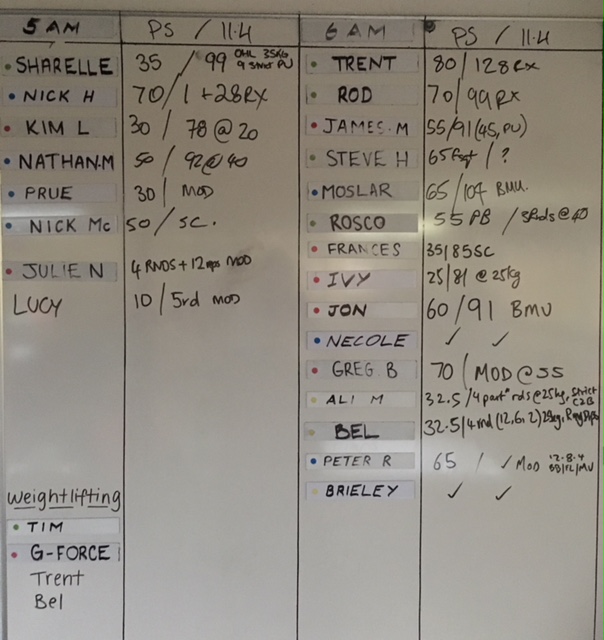 5 AM PS / 11.4
SHARELLE 35 / 99 OHL 35KG
9 strict PU
NICK H 70 / 1 + 28 RX
KIM L 30 / 78 @ 20
NATHAN.M 50 / 92 @ 40
PRUE 30 / MOD
NICK Mc 50 / SC.
JULIE N 4 RNDS + 12 reps MOD
LUCY 10 / 5rd MOD
weightlifting
TIM
G-FORCE
Trent
Bel
6 AM PS / 11.4
TRENT 80 / 128 Rx
ROD 70 / 99 RX
JAMES.M 55/91 (45, PU)
STEVE H 65 / ?
MOSLAR 65 / 107 BMU.
ROSCO 55 PB / @ 40
FRANCES 35/85 SC
IVY 25/81 @ 25kg
JON 60/91 BMU
NECOLE ✓ ✓
GREG. B 70 / MOD @ 55
ALI M 32.5 / 4 part rds @ 25kg, Strict
C2B
BEL 32.5 / 4 rnd (12, 6, 2)
PETER R 65 / ✓ MOD 12-8-4
BRIELEY ✓ ✓